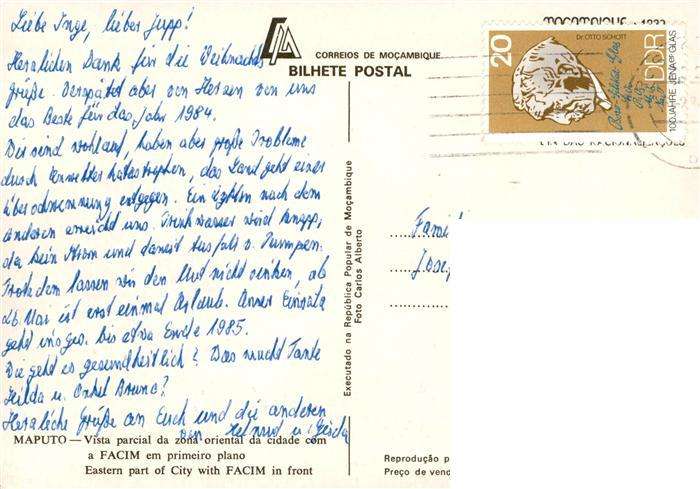 Liebe Inge, lieber Jupp!
Herzlichen Dank für die Weihnachts
grüße. Verspätet aber von Herzen von uns
das Beste für das Jahr 1984.
Wir sind wohlauf, haben aber große Probleme
durch Unwetterkatastrophen, das Land geht einer
Überschwemmung entgegen. Ein Zyklon nach dem
anderen erreicht uns. Trinkwasser wird knapp,
da kein Strom und damit Ausfall v. Pumpen.
Trotzdem lassen wir den Mut nicht sinken, ab
Mai ist erst einmal Urlaub. Unser Einsatz
geht insges. bis etwa Ende 1985.
Wie geht es gesundheitlich? Was macht Tante
Hilda u. Onkel Bruno?
Herzliche Grüße an Euch und die anderen
von Helmut u. Gisela
MAPUTO — Vista parcial da zona oriental da cidade com
a FACIM em primeiro plano
Eastern part of City with FACIM in front
CORREIOS DE MOÇAMBIQUE
BILHETE POSTAL
Executado na República Popular de Moçambique
Foto Carlos Alberto
MOÇAMBIQUE
20
Dr. OTTO SCHOTT
DDR
100 JAHRE JENAer GLAS
Fami
Josep
Reprodução p
Preço de vend